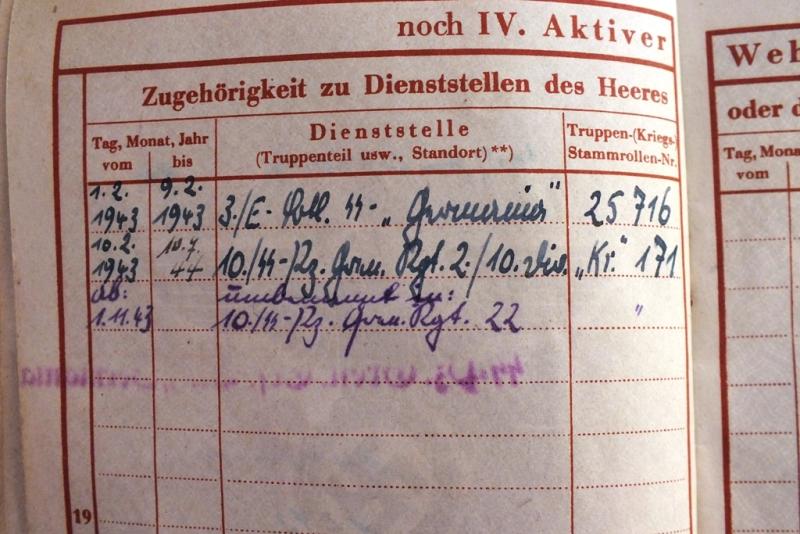 noch IV. Aktiver
Zugehörigkeit zu Dienststellen des Heeres
Tag, Monat, Jahr
vom bis
Dienststelle
(Truppenteil usw., Standort) **)
Truppen-(Kriegs-)
Stammrollen-Nr.
1.2. 9.2.
1943 1943 3./E- Btl. SS- „Germania" 25 716
10.2. 10.7
1943 44 10./SS-Pz. Gren. Rgt. 2./10. Div. „Kr." 171
ab: umbenannt in:
1.11.43 10./SS-Pz. Gren. Rgt. 22 "
19
Weh
oder d
Tag, Mona
vom